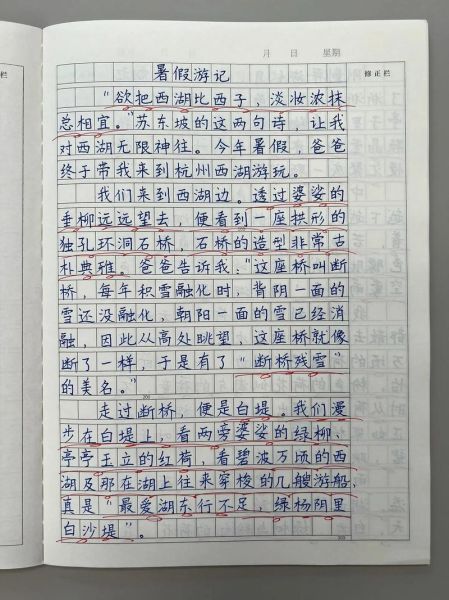 月 日 星期
暑假游记
修正栏
“欲把西湖比西子，淡妆浓抹
总相宜。”苏东坡的这两句诗，让我
对西湖无限神往。今年暑假，爸爸
终于带我来到杭州西湖游玩。
我们来到西湖边。透过婆娑的
垂柳远远望去，便看到一座拱形的
独孔环洞石桥，石桥的造型非常古
朴典雅。爸爸告诉我：“这座桥叫断
桥，每年积雪融化时，背阴一面的
雪还没融化，朝阳一面的雪已经消
融，因此从高处眺望，这座桥就像
断了一样，于是有了“断桥残雪”
的美名。”
走过断桥，便是白堤。我们漫
步在白堤上，看两旁婆娑的绿柳、
亭亭玉立的红荷，看碧波万顷的西
湖及那在湖上往来穿梭的几艘游船，
真是“最爱湖东行不足，绿杨阴里
白沙堤”。